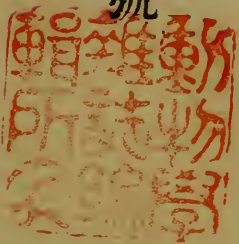 號
動物學
雜誌
輯所